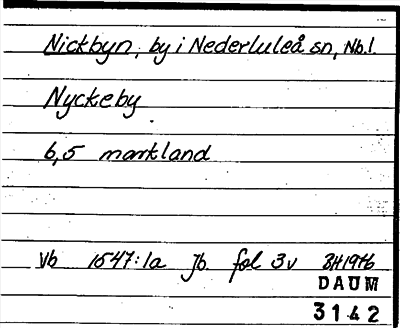 Nickbyn, by i Nederluleå sn, Nb.l.
Nyckeby
6,5 markland
Vb 1547:1a Jb. fol 3v BH1976
DAUM
3142